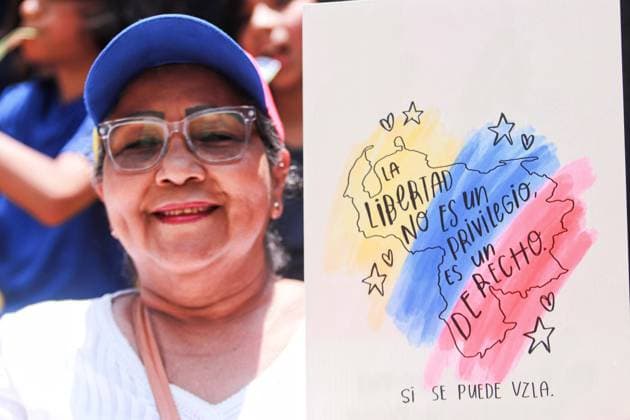 LA
LIBERTAD
NO ES UN
PRIVILEGIO,
ES UN
DERECHO.
SI SE PUEDE VZLA.